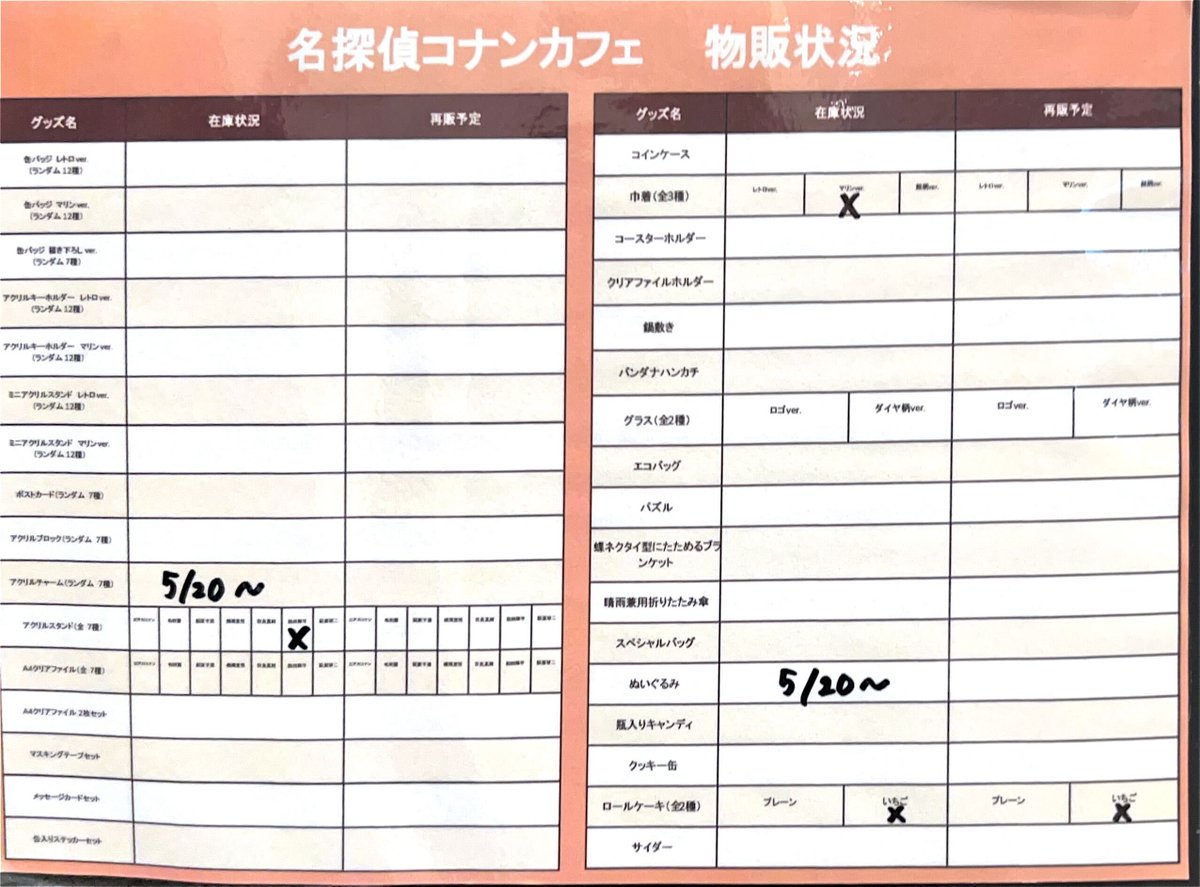 名探偵コナンカフェ 物販状況
グッズ名 在庫状況 再販予定
缶バッジ レトロver.
(ランダム 12種)
缶バッジ マリンver.
(ランダム 12種)
缶バッジ 描き下ろし ver.
(ランダム 7種)
アクリルキーホルダー レトロver.
(ランダム 12種)
アクリルキーホルダー マリンver.
(ランダム 12種)
ミニアクリルスタンド レトロver.
(ランダム 12種)
ミニアクリルスタンド マリンver.
(ランダム 12種)
ポストカード(ランダム 7種)
アクリルブロック(ランダム 7種)
アクリルチャーム(ランダム 7種) 5/20〜
アクリルスタンド(全 7種)
X
A4クリアファイル(全 7種)
A4クリアファイル 2枚セット
マスキングテープセット
メッセージカードセット
缶入りステッカーセット
グッズ名 在庫状況 再販予定
コインケース
巾着(全3種) レトロver. マリンver. 総柄ver. レトロver. マリンver. 総柄ver.
X
コースターホルダー
クリアファイルホルダー
鍋敷き
バンダナハンカチ
グラス(全2種) ロゴver. ダイヤ柄ver. ロゴver. ダイヤ柄ver.
エコバッグ
パズル
蝶ネクタイ型にたためるブラ
ンケット
晴雨兼用折りたたみ傘
スペシャルバッグ
ぬいぐるみ 5/20〜
瓶入りキャンディ
クッキー缶
ロールケーキ(全2種) プレーン いちご プレーン いちご
X X
サイダー